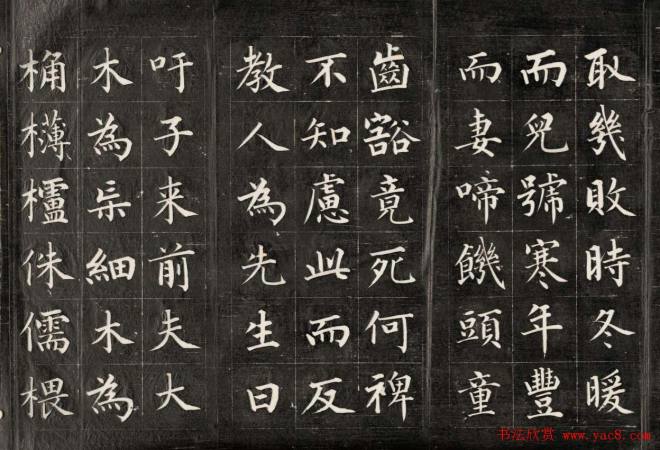 取幾敗時冬暖
而兒號寒年豐
而妻啼饑頭童
齒豁竟死何裨
不知慮此而反
教人為先生曰
吁子来前夫大
木為杗細木為
桷欂櫨侏儒椳
书法欣赏 www.yac8.com